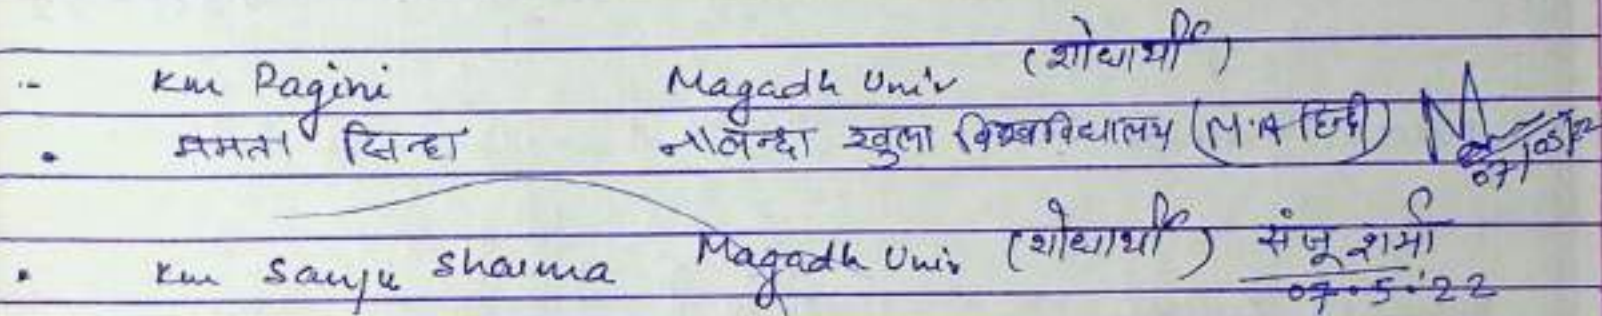 Km Ragini Magadh Univ (शोधार्थी)
ममता सिन्हा नालन्दा खुला विश्वविद्यालय (M.A हिन्दी) 07/05/22
Km Sanju Sharma Magadh Univ (शोधार्थी) संजू शर्मा
07.5.'22